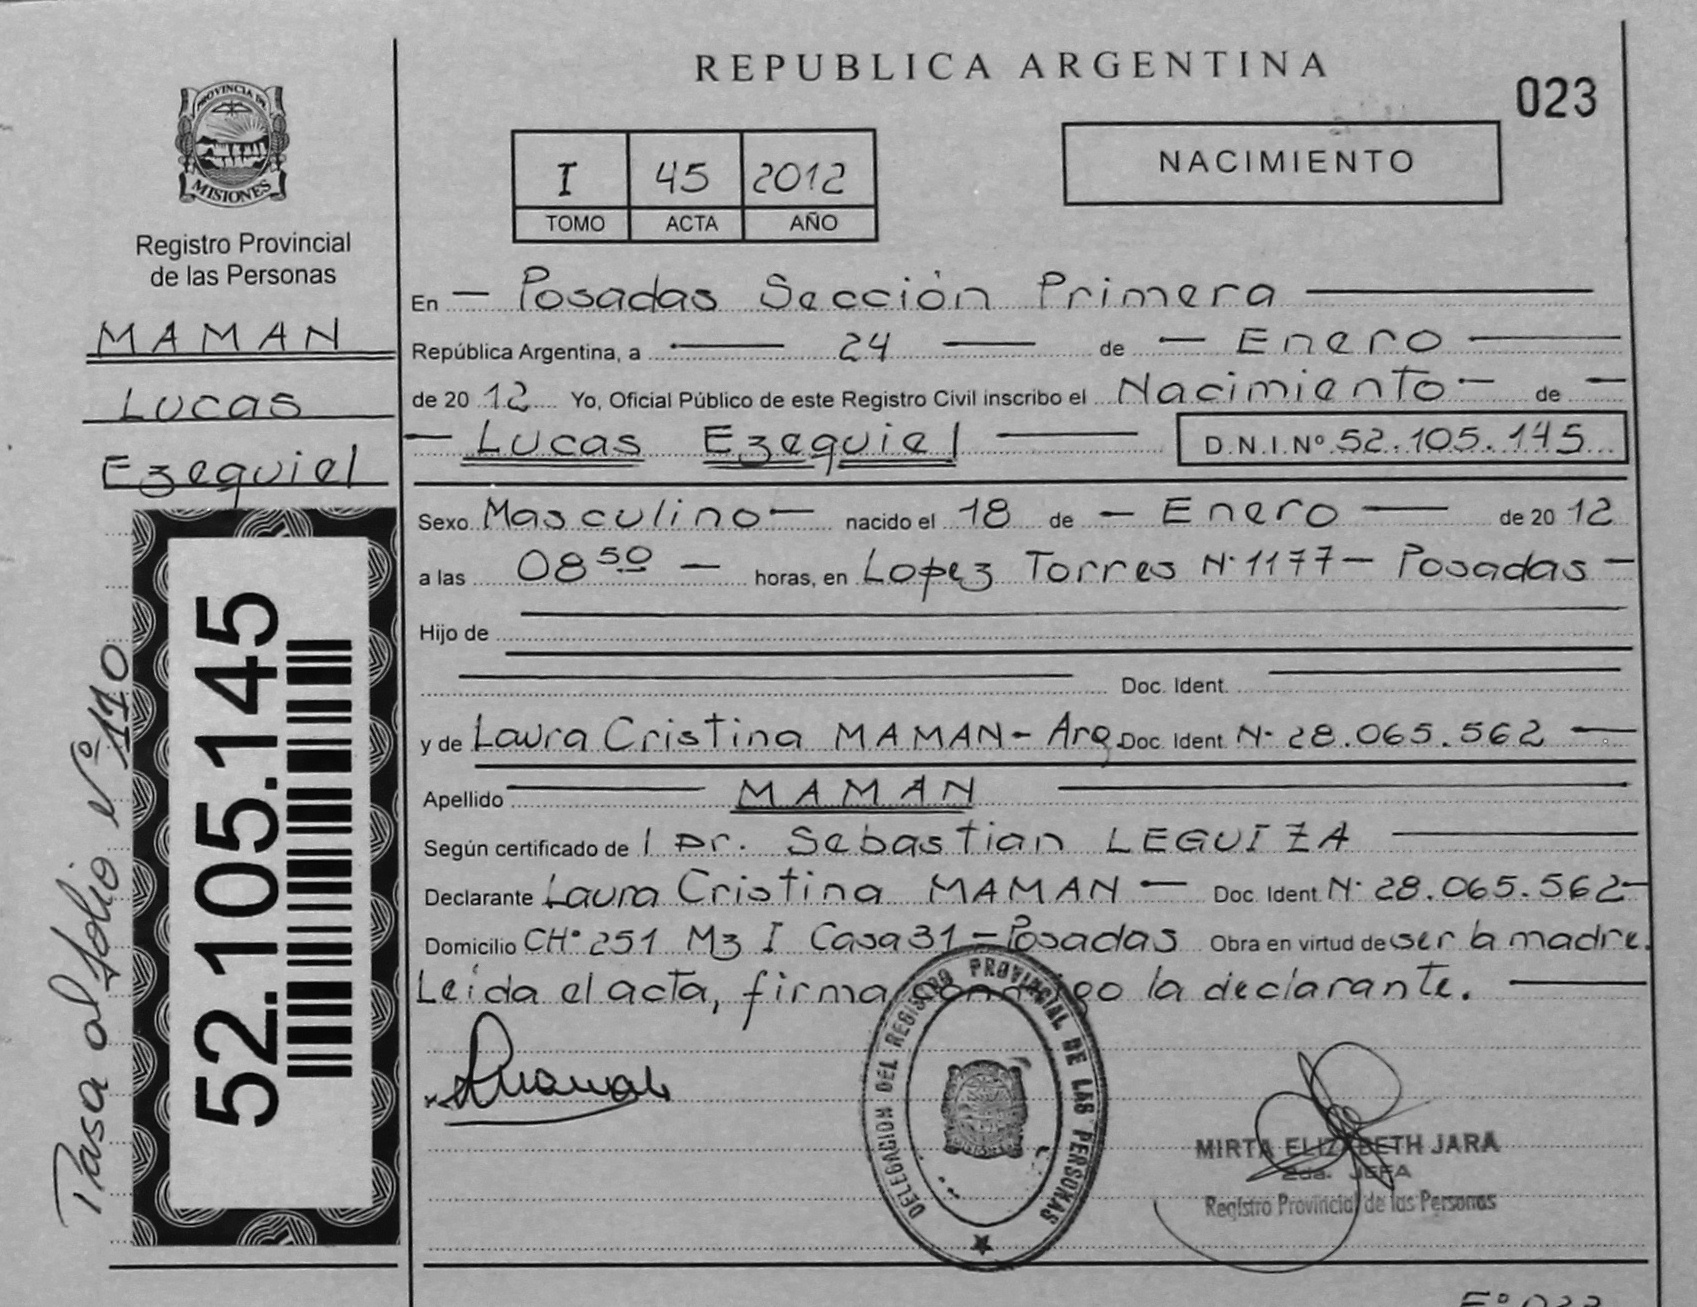 REPUBLICA ARGENTINA
023
PROVINCIA DE
MISIONES
Registro Provincial
de las Personas
MAMAN
Lucas
Ezequiel
52.105.145
Pasa al folio Nº 110
I 45 2012
TOMO ACTA AÑO
NACIMIENTO
En — Posadas Sección Primera —
República Argentina, a — 24 — de — Enero —
de 20 12 Yo, Oficial Público de este Registro Civil inscribo el Nacimiento — de —
— Lucas Ezequiel — D.N.I.Nº 52.105.145
Sexo Masculino — nacido el 18 de — Enero — de 20 12
a las 08 50 — horas, en Lopez Torres Nº 1177 — Posadas —
Hijo de
Doc. Ident.
y de Laura Cristina MAMAN - Arg. Doc. Ident. Nº 28.065.562 —
Apellido — MAMAN —
Según certificado de l Dr. Sebastian LEGUIZA —
Declarante Laura Cristina MAMAN — Doc. Ident. Nº 28.065.562 —
Domicilio CHº 251 Mz I Casa 31 — Posadas Obra en virtud de ser la madre.
Leída el acta, firma conmigo la declarante. —
DELEGACION DEL REGISTRO PROVINCIAL DE LAS PERSONAS
MIRTA ELIZABETH JARA
2da. JEFA
Registro Provincial de las Personas